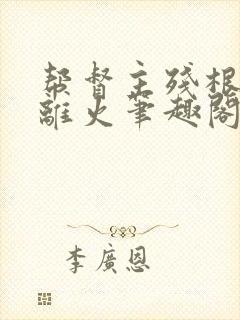 帮督主残根
離火筆趣閣
李廣恩